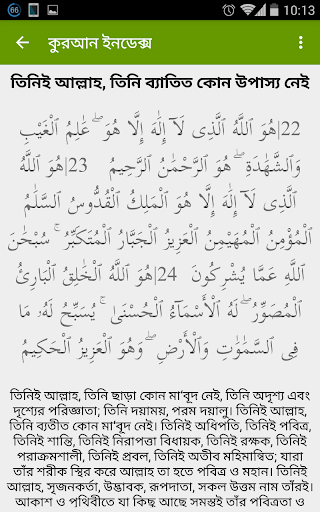 66 10:13
কুরআন ইনডেক্স
তিনিই আল্লাহ, তিনি ব্যাতিত কোন উপাস্য নেই
22|هُوَ ٱللَّهُ ٱلَّذِى لَآ إِلَٰهَ إِلَّا هُوَ ۖ عَٰلِمُ ٱلْغَيْبِ
وَٱلشَّهَٰدَةِ ۖ هُوَ ٱلرَّحْمَٰنُ ٱلرَّحِيمُ 23|هُوَ ٱللَّهُ
ٱلَّذِى لَآ إِلَٰهَ إِلَّا هُوَ ٱلْمَلِكُ ٱلْقُدُّوسُ ٱلسَّلَٰمُ
ٱلْمُؤْمِنُ ٱلْمُهَيْمِنُ ٱلْعَزِيزُ ٱلْجَبَّارُ ٱلْمُتَكَبِّرُ ۚ سُبْحَٰنَ
ٱللَّهِ عَمَّا يُشْرِكُونَ 24|هُوَ ٱللَّهُ ٱلْخَٰلِقُ ٱلْبَارِئُ
ٱلْمُصَوِّرُ ۖ لَهُ ٱلْأَسْمَآءُ ٱلْحُسْنَىٰ ۚ يُسَبِّحُ لَهُۥ مَا
فِى ٱلسَّمَٰوَٰتِ وَٱلْأَرْضِ ۖ وَهُوَ ٱلْعَزِيزُ ٱلْحَكِيمُ
তিনিই আল্লাহ, তিনি ছাড়া কোন মা'বূদ নেই, তিনি অদৃশ্য এবং
দৃশ্যের পরিজ্ঞাতা; তিনি দয়াময়, পরম দয়ালু। তিনিই আল্লাহ,
তিনি ব্যতীত কোন মা'বূদ নেই। তিনিই অধিপতি, তিনিই পবিত্র,
তিনিই শান্তি, তিনিই নিরাপত্তা বিধায়ক, তিনিই রক্ষক, তিনিই
পরাক্রমশালী, তিনিই প্রবল, তিনিই অতীব মহিমান্বিত; যারা
তাঁর শরীক স্থির করে আল্লাহ তা হতে পবিত্র ও মহান। তিনিই
আল্লাহ, সৃজনকর্তা, উদ্ভাবক, রূপদাতা, সকল উত্তম নাম তাঁরই।
আকাশ ও পৃথিবীতে যা কিছু আছে সমস্তই তাঁর পবিত্রতা ও